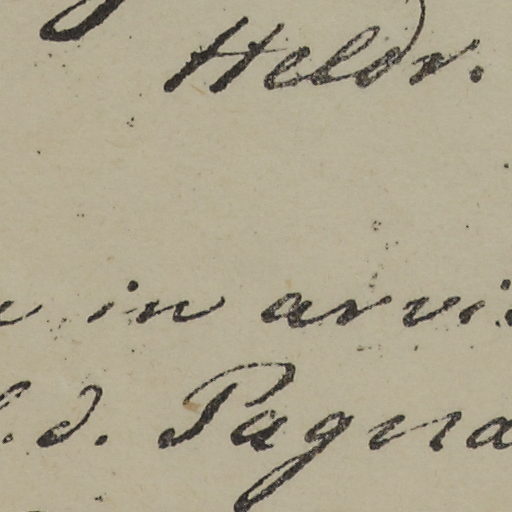 Heldr.
in arvi
d. Pagna